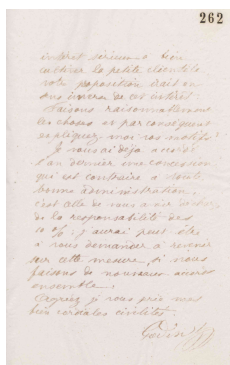 262
intérêt sérieux à bien
cultiver la petite clientèle
votre proposition irait en
sens inverse de cet intérêt.
Faisons raisonnablement
les choses et par conséquent
expliquez moi vos motifs.
Je vous ai déjà accordé
l'an dernier une concession
qui est contraire à toute
bonne administration,
c'est celle de vous avoir déchargé
de la responsabilité des
10 %, j'aurai peut être
à vous demander à revenir
sur cette mesure, si nous
faisons de nouveaux accords
ensemble.
Agréez je vous prie mes
bien cordiales civilités
Godin